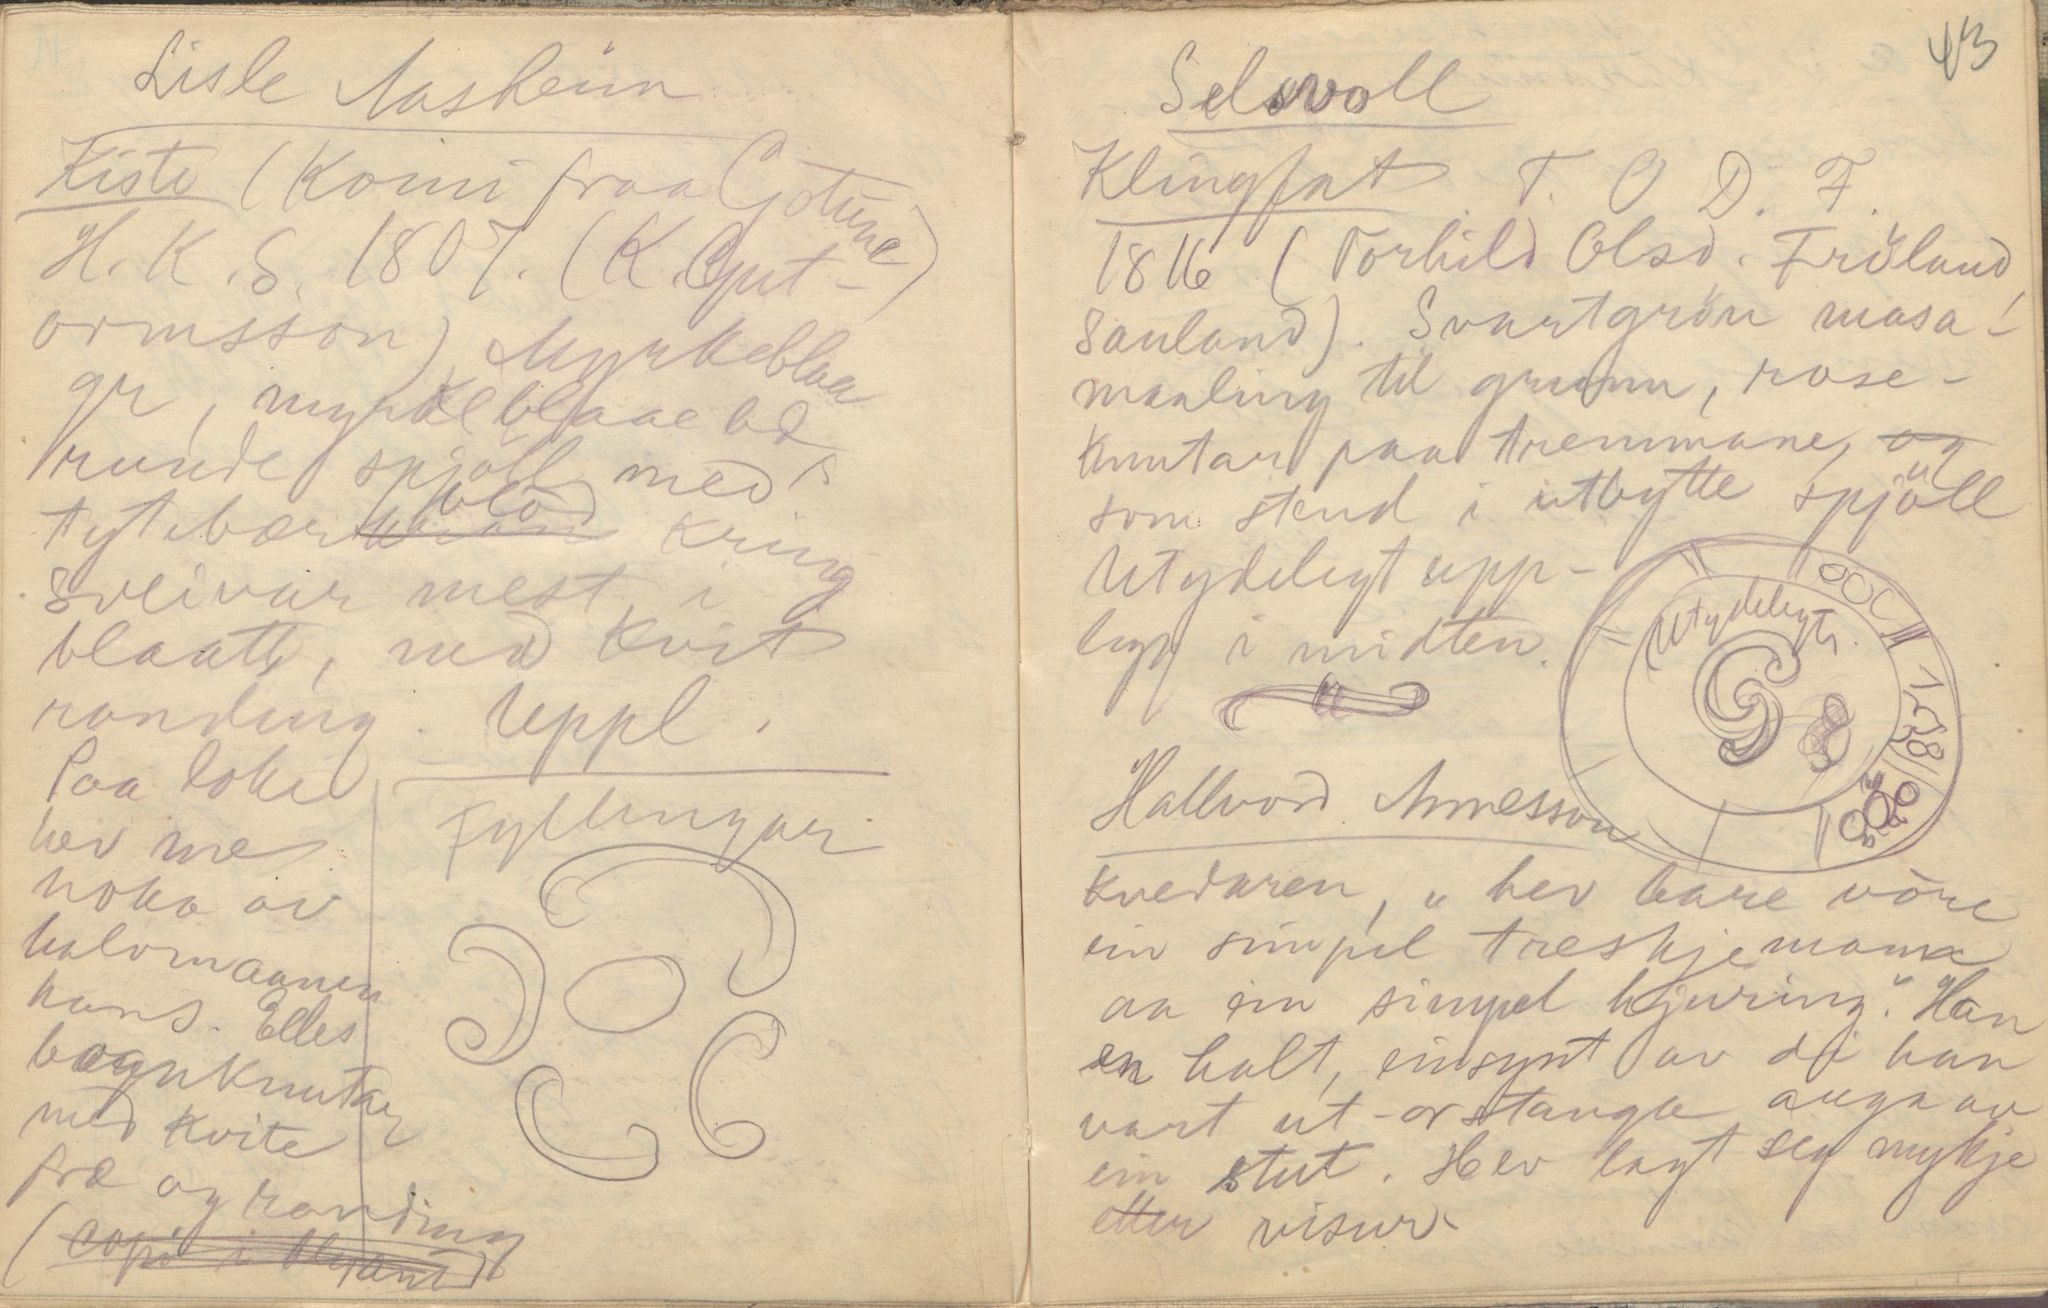 Lisle Aasheim
Kiste (Komi fraa Gjotune)
H. K. S. 1807. (K. Gut-
ormsson) Myrkeblaa
gr, myrkeblaae
runde spjöll med
tytebær blöd kring
sveivar mest i
blaatt, med kvit
randing. Uppl.
Paa loket
hev me
noko av
halvmaanen
hans. Elles
bognknutar
med kvite
fræ og randing
(copi i
Fyllingar
43
Selsvoll
Klingfat T. O. D. F.
1816 (Torhild Olsd. Fröland,
Sauland). Svartgrön masa-
maaling til grunn, rose-
knutar paa tremmane, og
som stend i utbytte spjöll
Utydelegt upp-
lyst i midten.
Utydelegt.
Hallvord Arnesson
kvedaren, "hev bare vöre
ein simpel treskjemann
aa ein simpel hjuring". Han
er halt, einsynt av di han
vart ut-or stanga auga av
ein stut. Hev lagt seg mykje
etter visur.